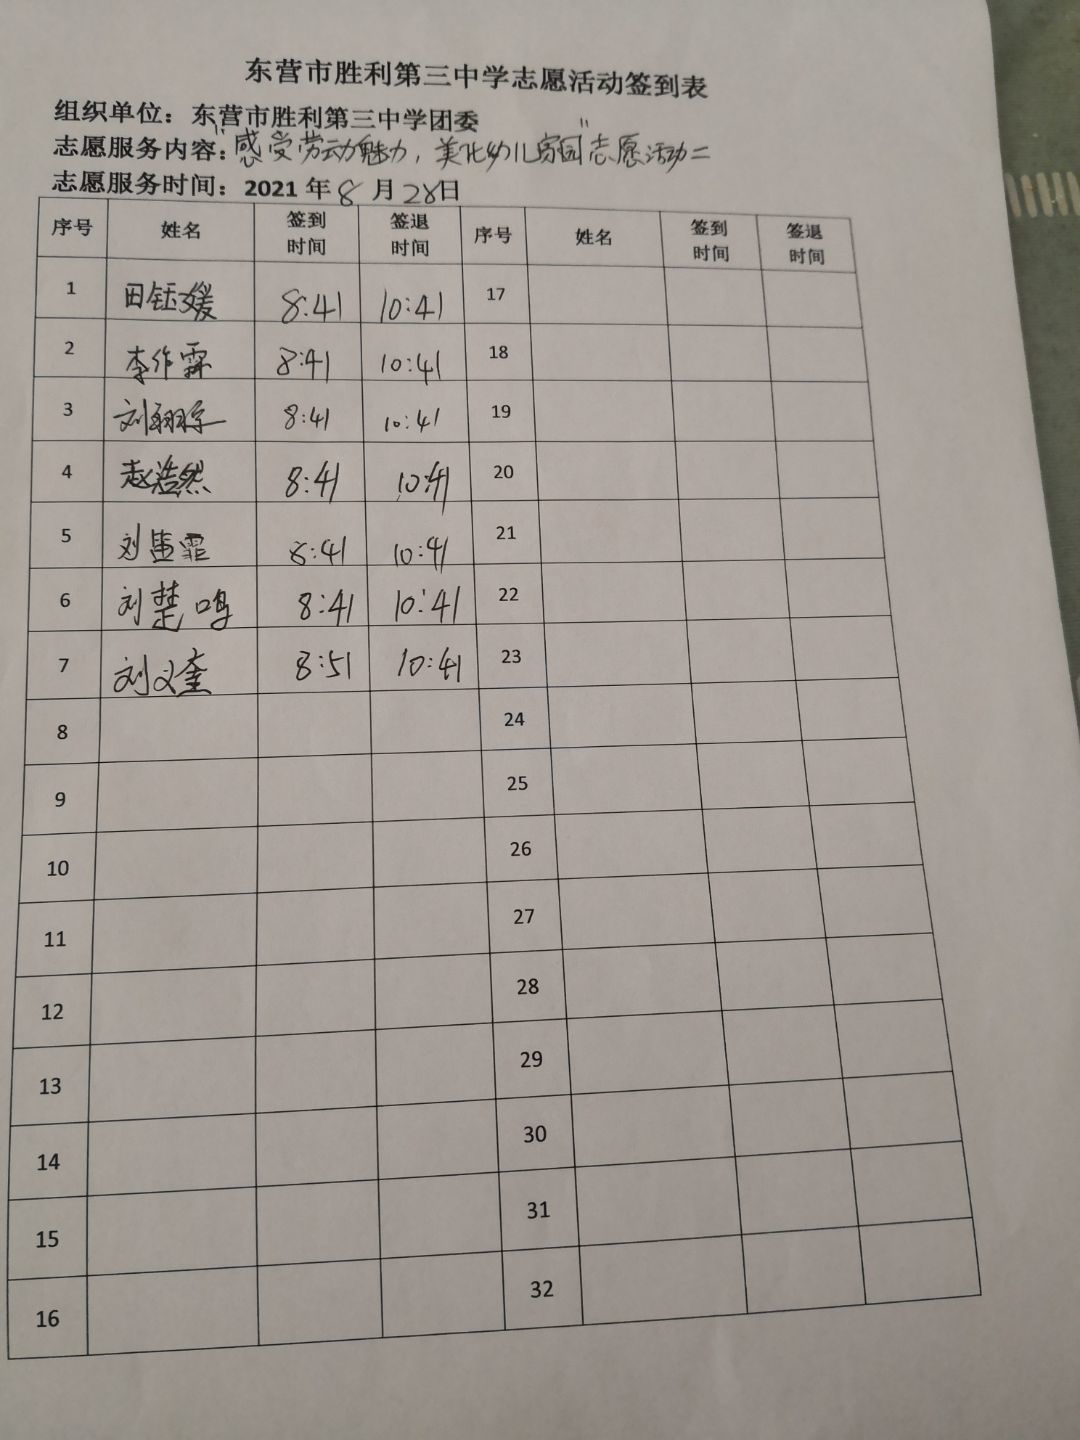 东营市胜利第三中学志愿活动签到表
组织单位：东营市胜利第三中学团委
志愿服务内容："感受劳动魅力，美化幼儿家园"志愿活动二
志愿服务时间：2021年8月28日
序号 姓名 签到时间 签退时间 序号 姓名 签到时间 签退时间
1 田钰媛 8:41 10:41 17
2 李作霖 8:41 10:41 18
3 刘翔宇 8:41 10:41 19
4 赵浩然 8:41 10:41 20
5 刘 霏 8:41 10:41 21
6 刘楚鸣 8:41 10:41 22
7 刘义奎 8:51 10:41 23
8 24
9 25
10 26
11 27
12 28
13 29
14 30
15 31
16 32